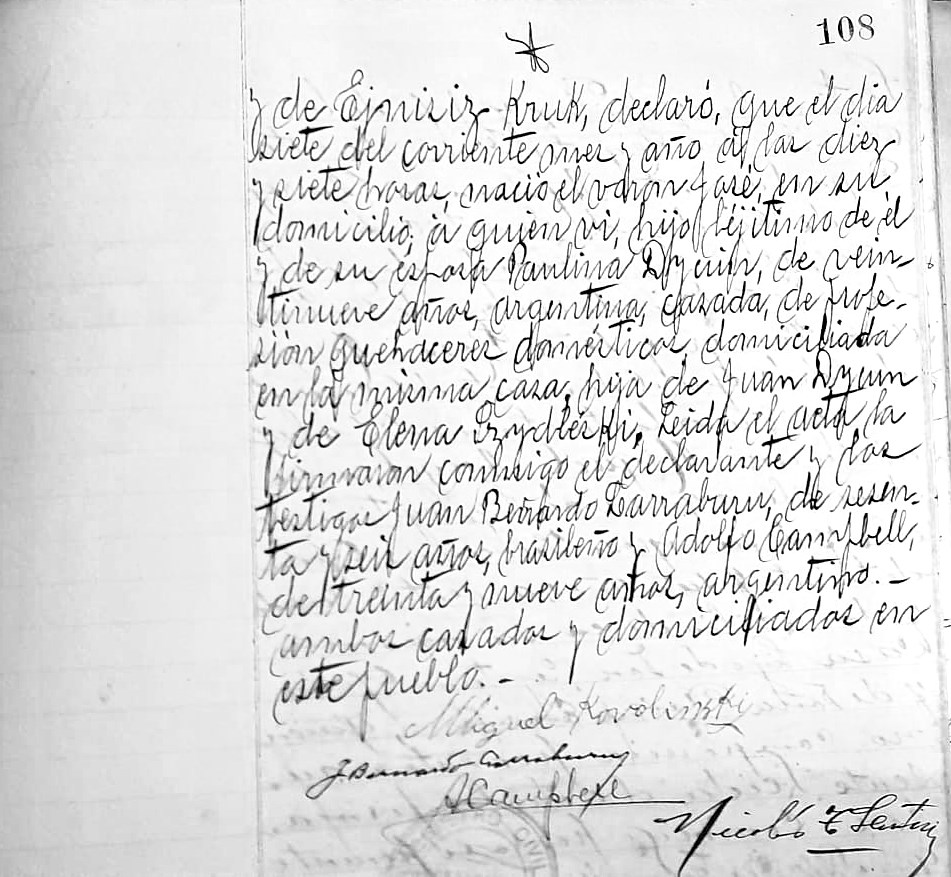 108
y de Ejnisiz Kruk, declaró, que el dia
siete del corriente mes y año, a las diez
y siete horas, nació el varon José, en su
domicilio, a quien vi, hijo léjitimo de él
y de su esposa Paulina Dyuin, de vein-
tinueve años, argentina, casada, de profe-
sión quehaceres domésticos, domiciliada
en la misma casa, hija de Juan Dyuin
y de Elena. Leida el acta la
firmaron conmigo el declarante y los
testigos Juan Bernardo Larraburu, de sesen-
ta y seis años, brasileño y Adolfo Campbell,
de treinta y nueve años, argentino.-
ambos casados y domiciliados en
este pueblo.-
Miguel Kovolenski
J. Bernardo Larraburu
A Campbell
Nicolás